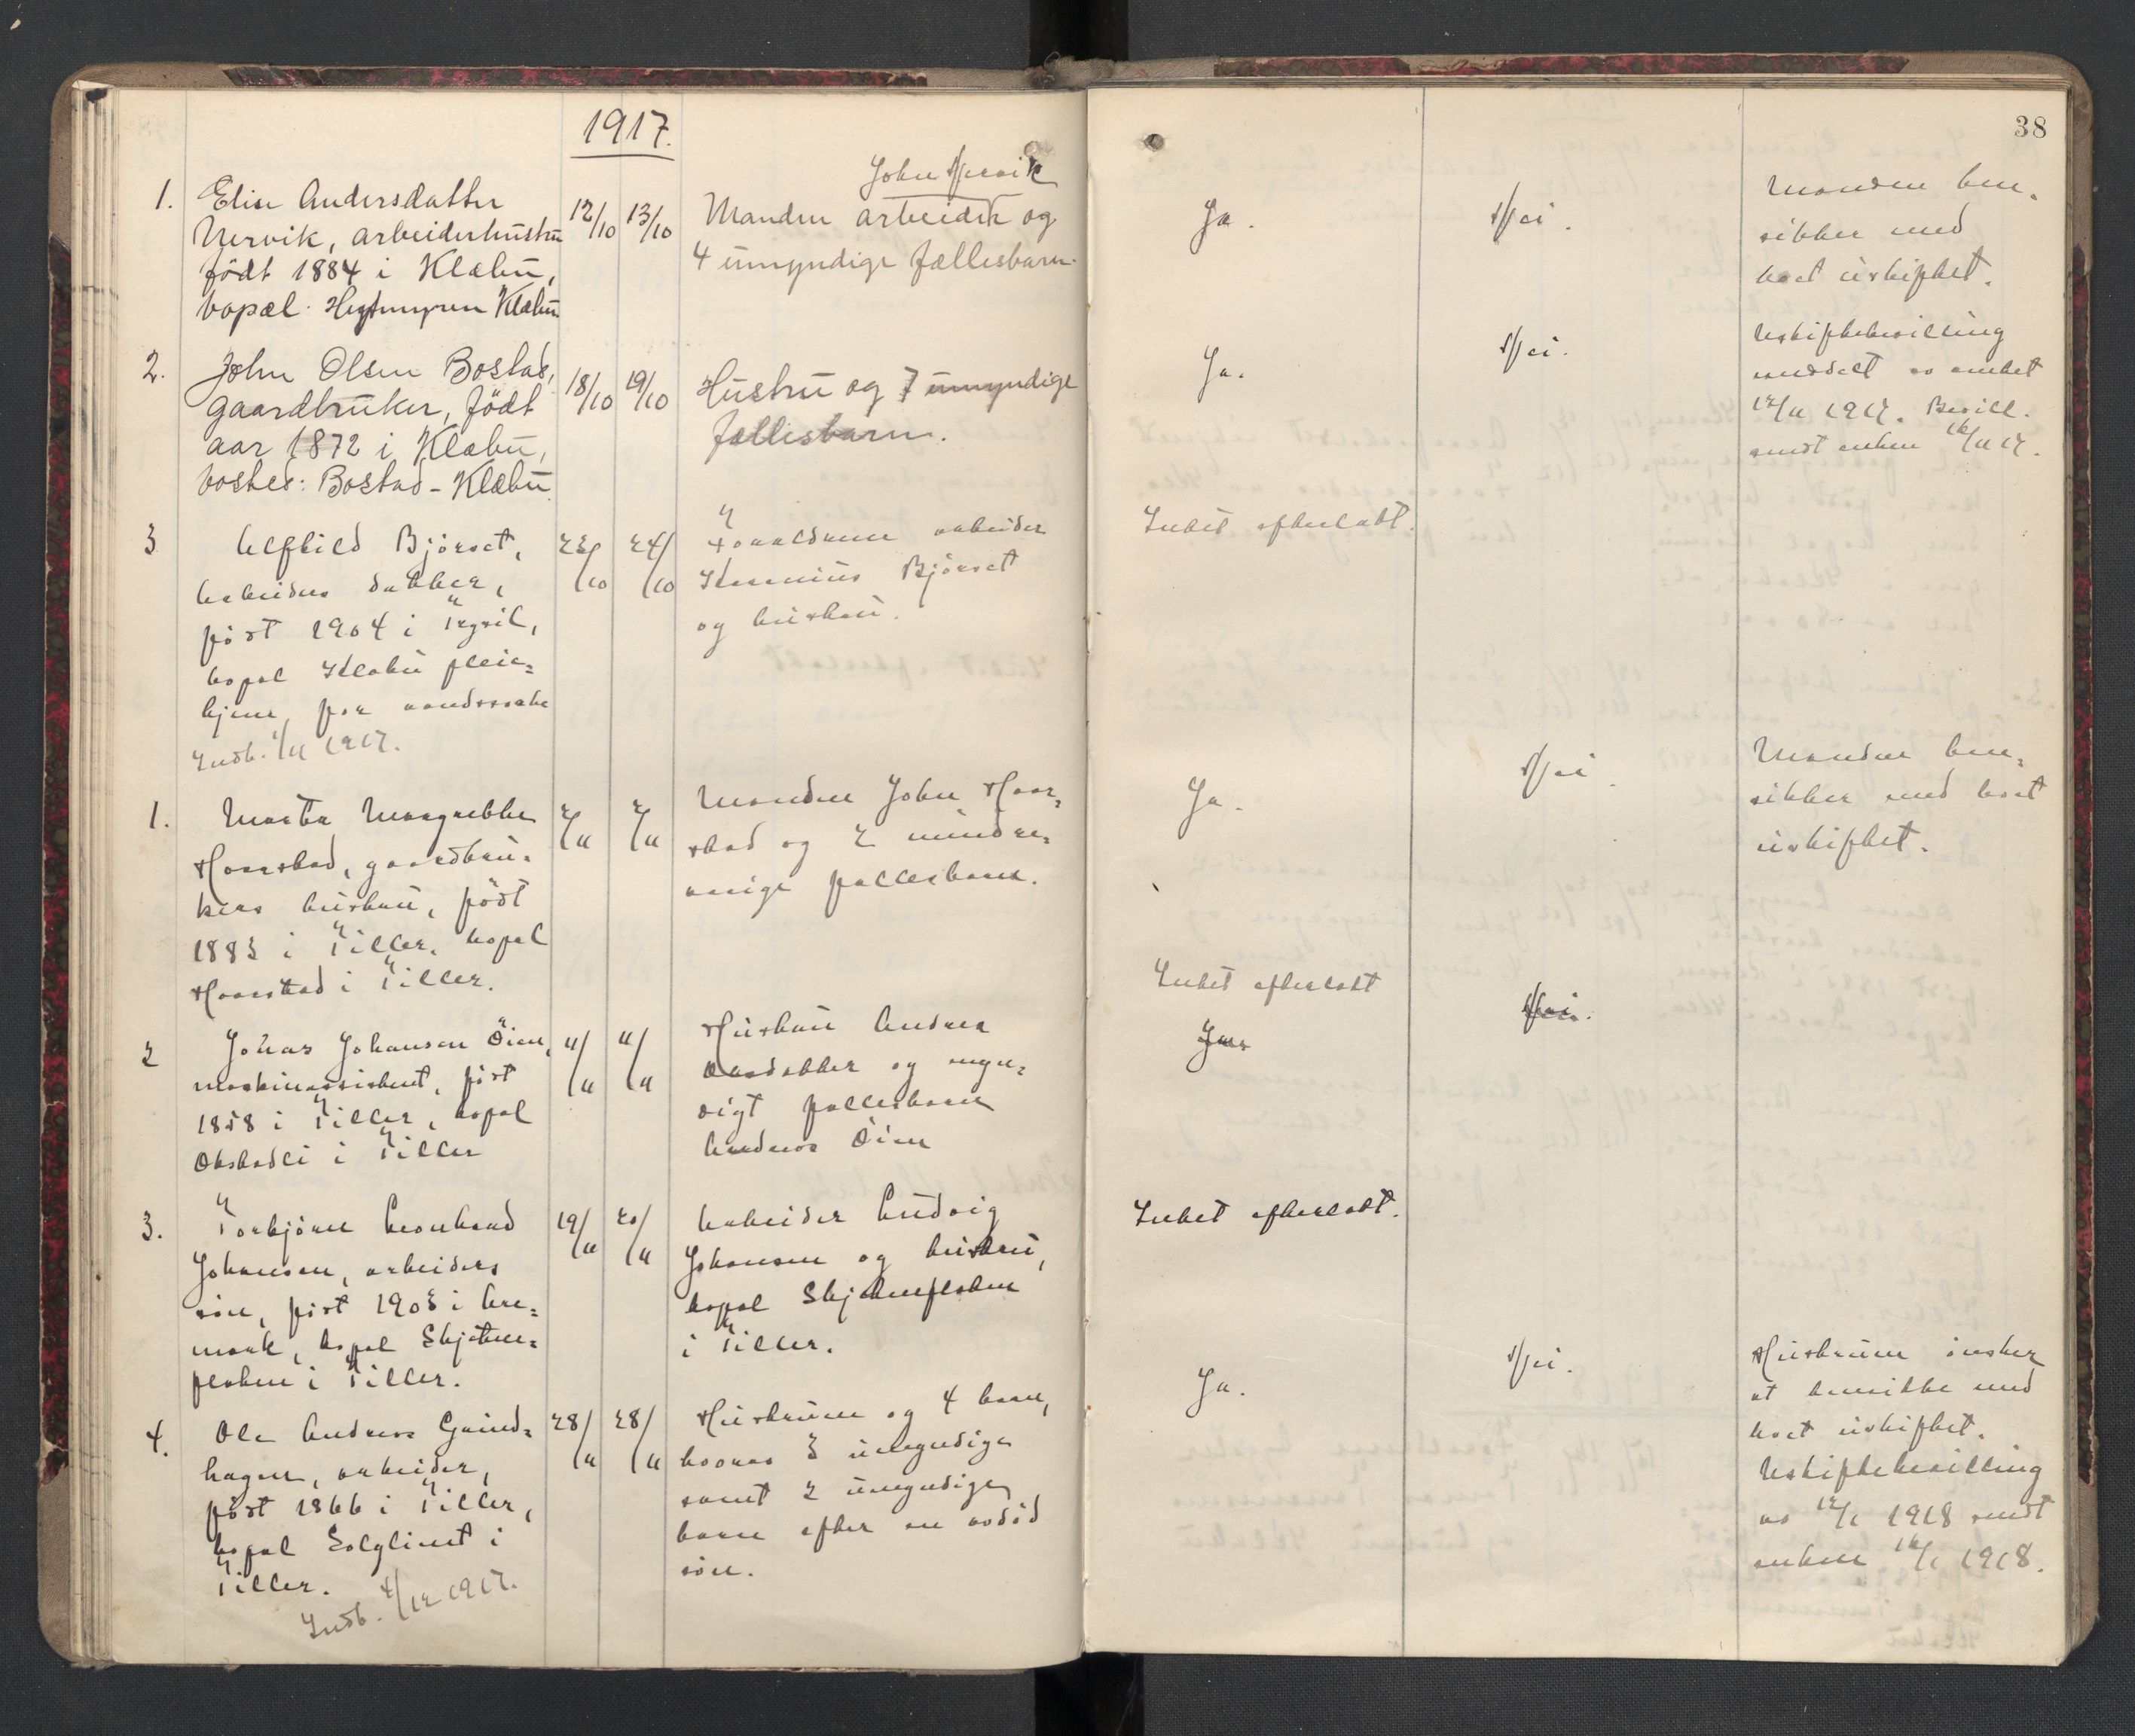 1917.
38
1. Elise Andersdatter
Nervik, arbeiderhustru
födt 1884 i Klæbu,
bopæl. Klæbu
12/10 13/10
John Nervik
Manden arbeider og
4 umyndige fællesbarn.
Ja.
Nei.
Manden ben.
sitter med
boet uskiftet.
2. John Olsen Bostad,
gaardbruker, födt
aar 1872 i Klæbu,
bosted: Bostad - Klæbu
18/10 19/10
Hustru og 7 umyndige
fællesbarn.
Ja.
Nei.
Uskiftebevilling
meddelt av embet
12/11 1917. Bevill.
sendt enken 16/11 17.
3 Alfhild Bjørset,
arbeiders datter,
født 1904 i
bopæl Klæbu pleie=
hjem, for aandssvake
Indb. 1/11 1917.
23/10 24/10
Forældrene arbeider
Bjørset
og hustru.
Intet efterlatt.
1. Marta Margrethe
Haarstad, gaardbru=
kers hustru, født
1883 i Tiller, bopæl
Haarstad i Tiller.
2/11 2/11
Manden John Haar=
stad og 2 mindre=
aarige fællesbarn.
Ja.
Nei.
Manden ben=
sitter med boet
uskiftet.
2 Johan Johansen Öien,
maskinassistent, født
1858 i Tiller, bopæl
i Tiller
11/11 11/11
Hustru Andrea
og myn=
digt fællesbarn
Andreas Öien
Intet efterlatt
Nei.
3. Torbjörn Leonhard
Johansen, arbeiders
sön, født 1903 i Are=
mark, bopæl Skjetne=
flaten i Tiller.
19/11 20/11
Arbeider Ludvig
Johansen og hustru,
bopæl Skjetneflaten
i Tiller.
Intet efterlatt.
4. Ole Andreas Grind=
hagen, arbeider,
født 1866 i Tiller,
bopæl Solglimt i
Tiller.
Indb. 4/12 1917.
28/11 28/11
Hustruen og 4 barn,
hvorav 3 umyndige
samt 2 umyndige
barn efter en avdöd
sön.
Ja.
Nei.
Hustruen önsker
at bensitte med
boet uskiftet.
Uskiftebevilling
av 12/1 1918 sendt
enken 16/1 1918.